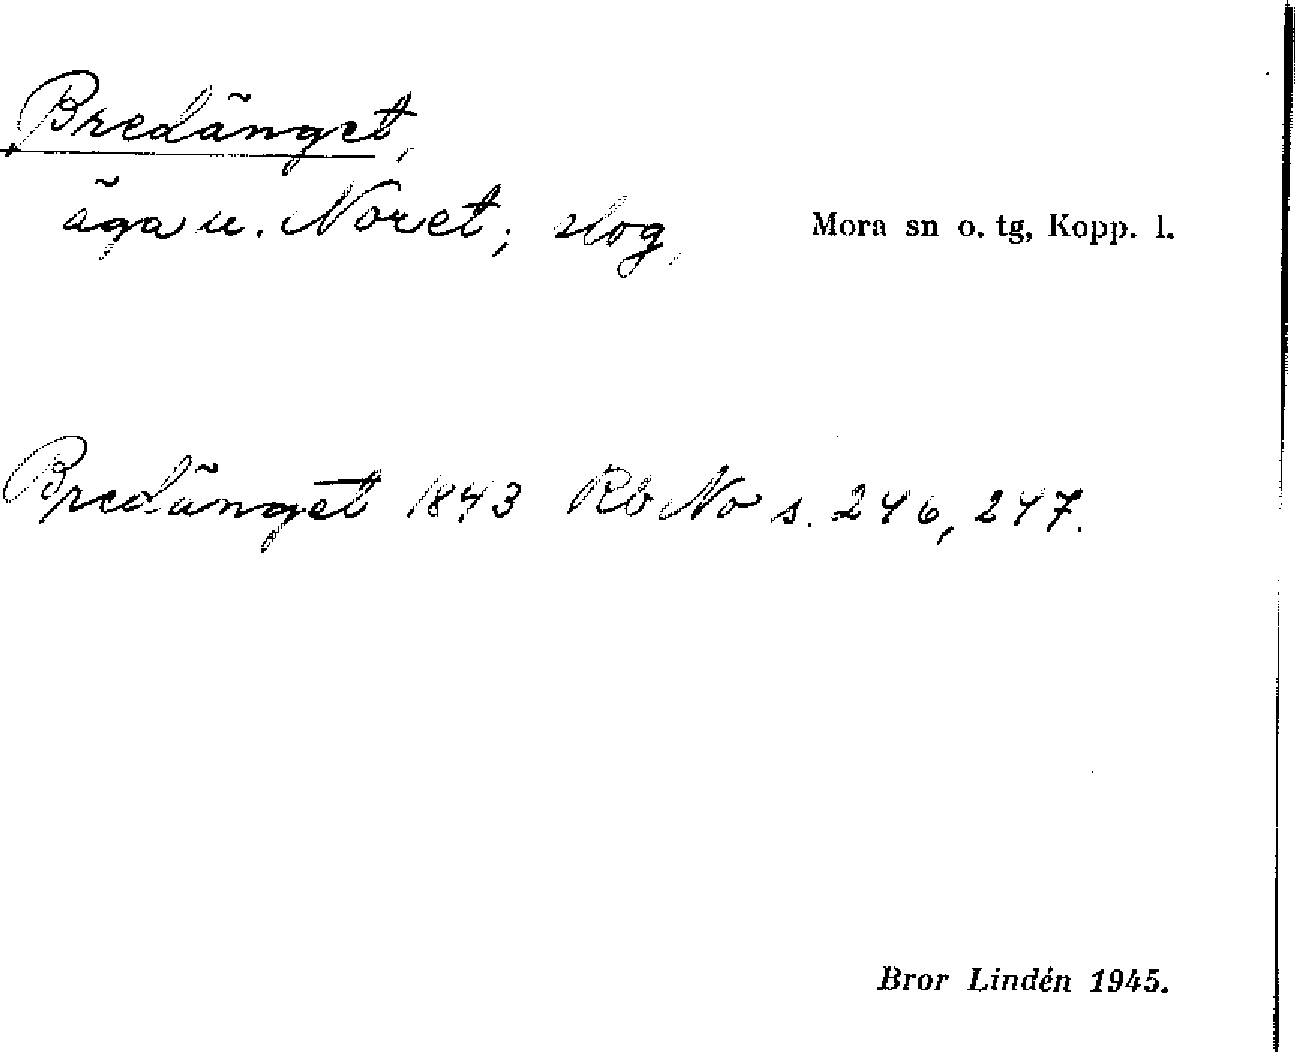 Bredänget,
äga u. Noret; slog,
Mora sn o. tg, Kopp. l.
Bredänget 1843 Rb No s. 246, 247.
Bror Lindén 1945.